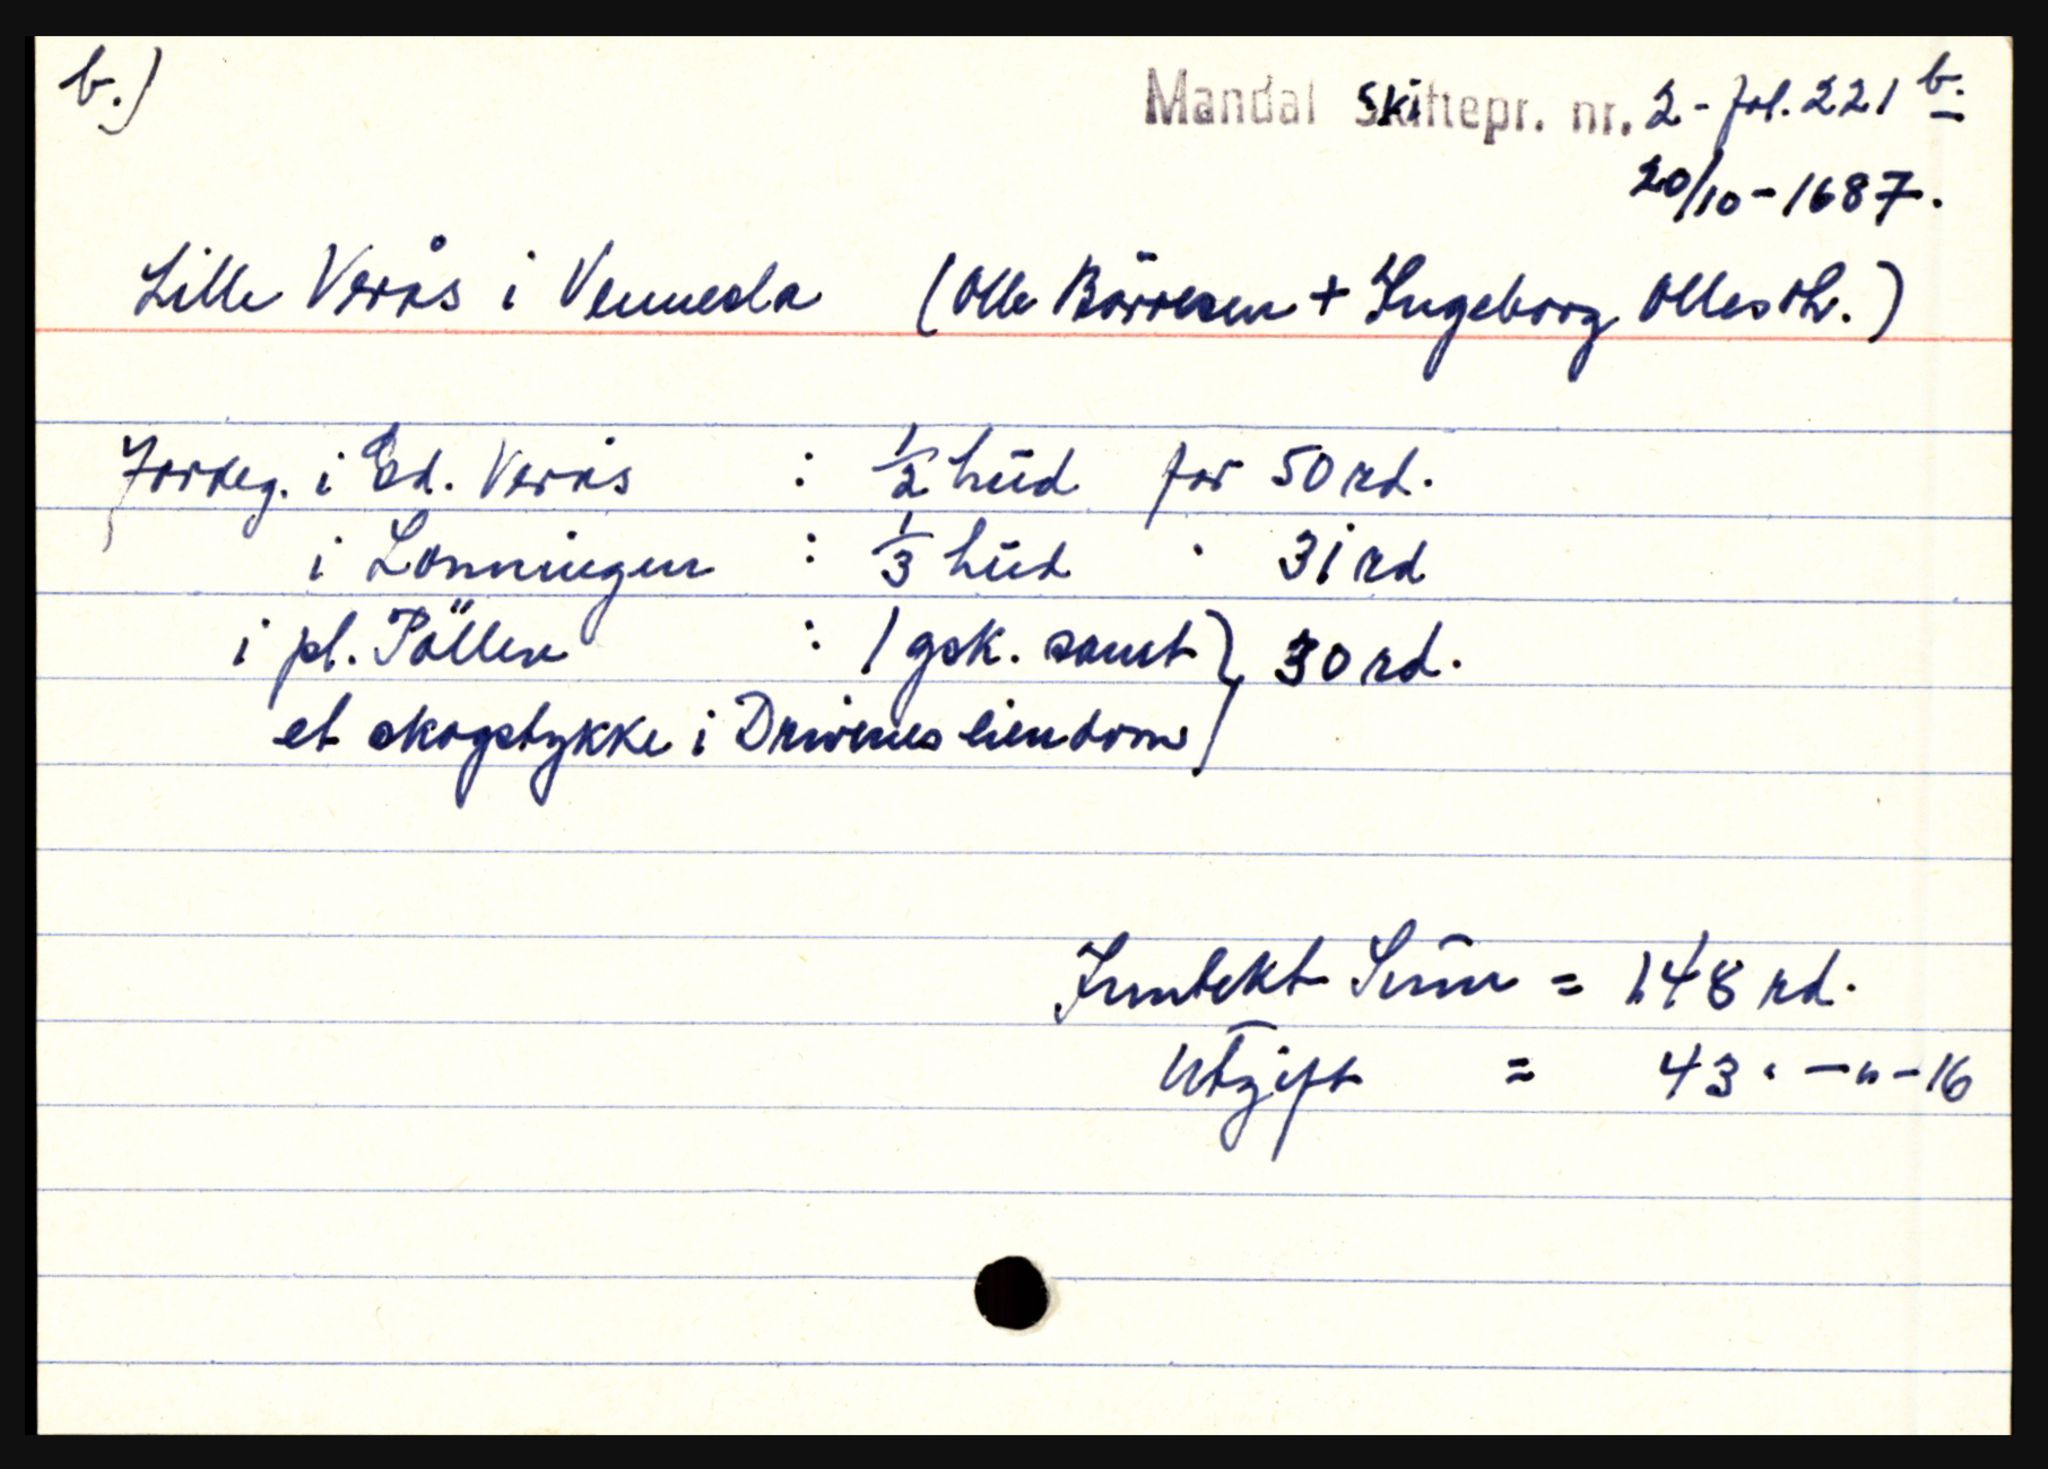 b.)
Mandal Skiftepr. nr. 2 - fol. 221 b.
20/10 - 1687.
Lille Verås i Vennesla (Olle Börresen + Ingeborg Ollesdtr.)
Jordeg. i Ed. Verås : 1/2 hūd for 50 rd.
i Lonningen : 1/3 hūd " 31 rd
i pl. Pöllen : 1 gsk. samt } 30 rd.
et skogstykke i Drivenes eiendom
Inntekt Sūm = 148 rd.
Utgift = 43 " — " — 16